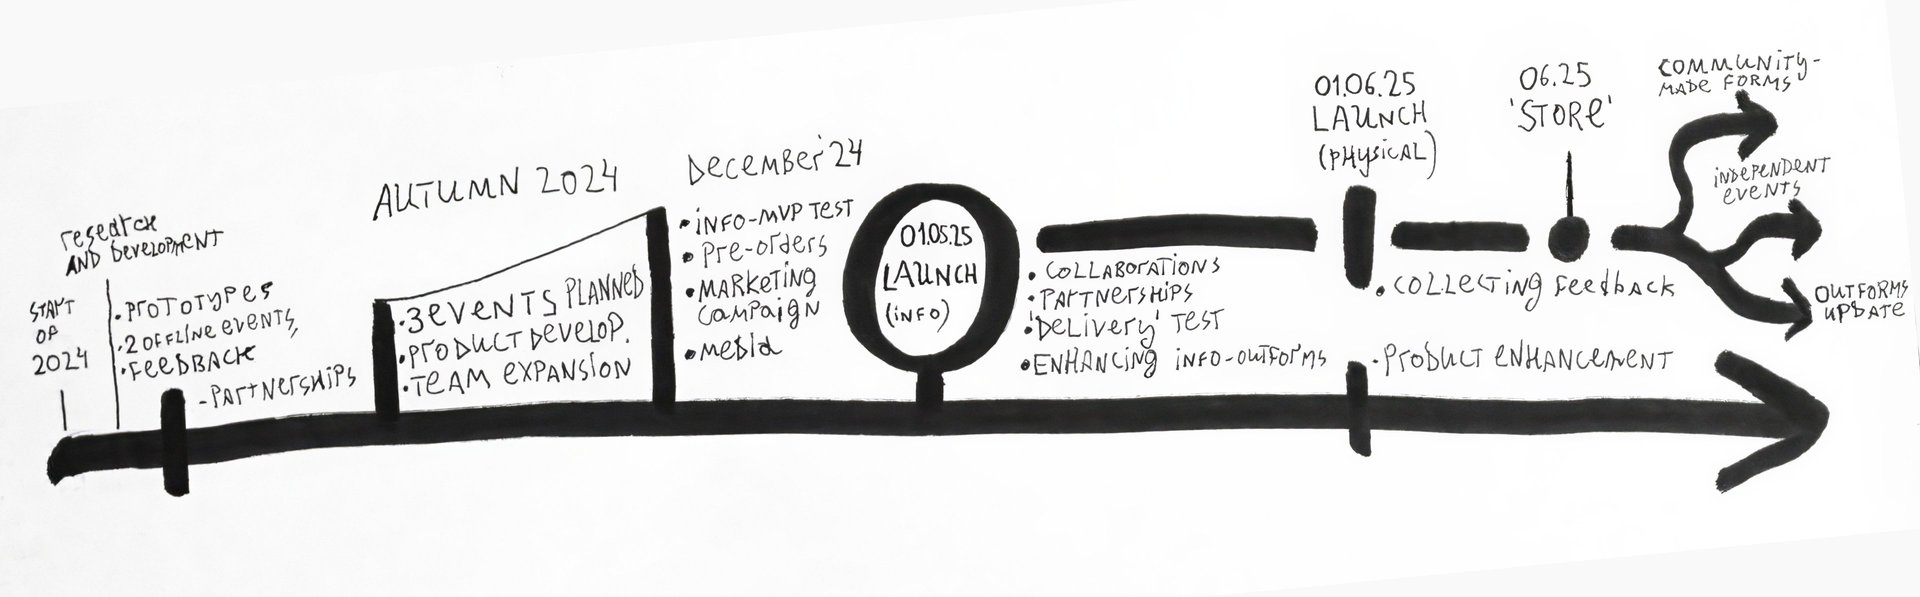 START
OF
2024
research
AND DevelOPMENT
• PrOTOTYPES
• 2 OFFLINE eVENTS,
• FEEDBACK
- PARTNerSHiPS
AUTUMN 2024
• 3 EVENTS PLANNED
• PrODUCT DEVELOP.
• TEAM EXPANSION
DeceMBer'24
• INFO-MVP TEST
• Pre-OrDerS
• MARKETING
CAMPAIGN
• MeDIA
01.05.25
LAUNCH
(INFO)
• COLLABOrATIONS
• PArTNErSHIPS
• 'DeLiVerY' TEST
• ENHANCING INFO-OUTFORMS
01.06.25
LAUNCH
(PHYSICAL)
• COLLECTING FeeDBACK
- PrODUCT eNHANCeMENT
06.25
'STORe'
COMMUNITY-
MADE FORMS
INDEPENDENT
EVENTS
OUTFORMS
UPDATE